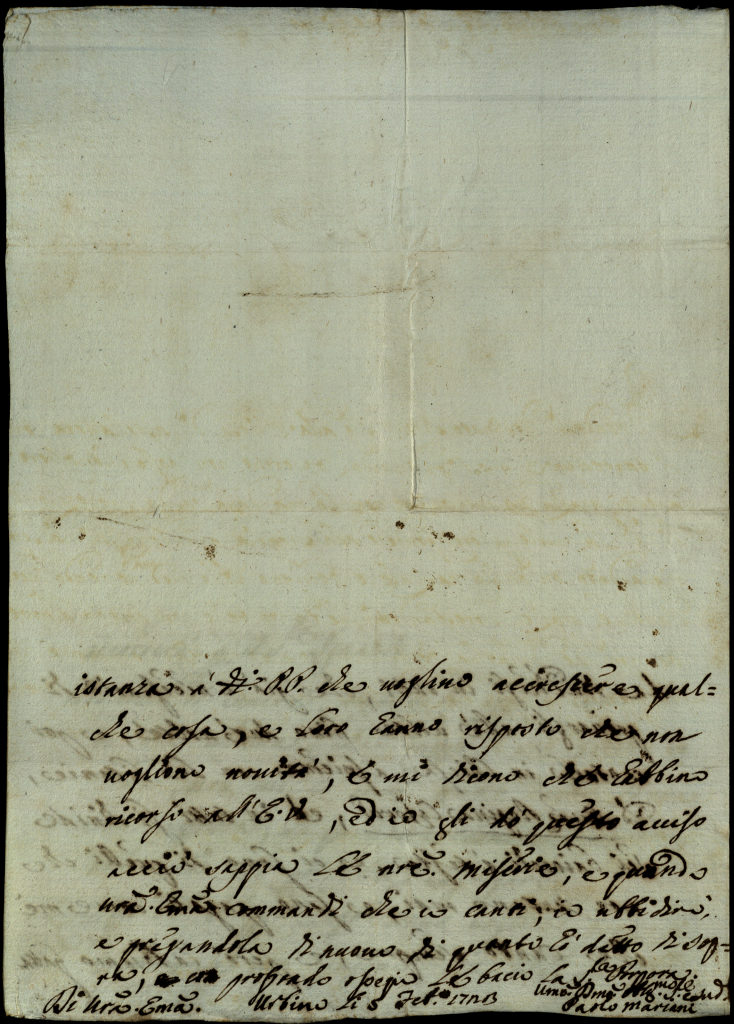 istanza à di. P.P. che voglino accrescere qual=
che cosa, e loro hanno risposto che non
vogliono novità, e mi dicono che habbino
ricorso all' E. V., ed io gli do questo aviso
acciò sappia le nre. miserie, e quando
vra. Ema. commandi che io canti, io ubbidirò,
e pregandola di nuovo di quanto hò detto di sop=
ra, e con profondo ossequio le bacio la Sa. Porpora
Di Vra. Ema. Urbino li 8 Feb.ro
Paolo Mariani